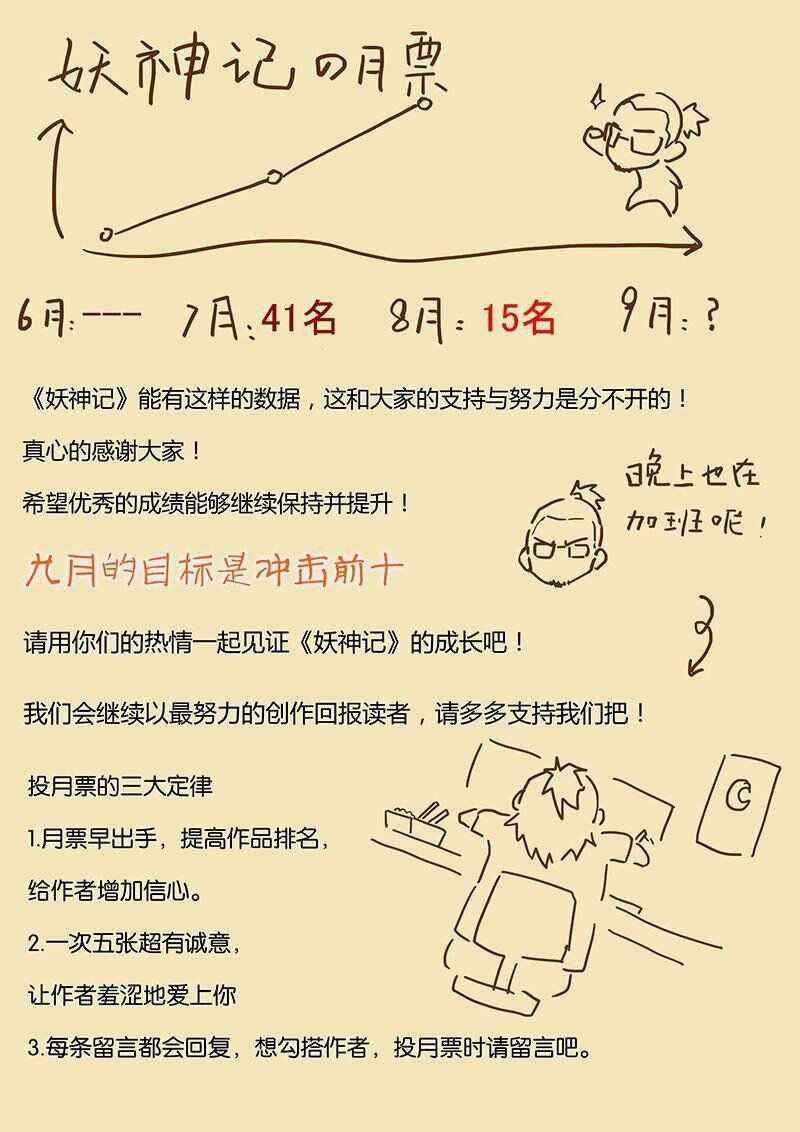 妖神记の月票
6月:--- 7月:41名 8月:15名 9月:?
《妖神记》能有这样的数据，这和大家的支持与努力是分不开的！
真心的感谢大家！
希望优秀的成绩能够继续保持并提升！
晚上也在
加班呢！
九月的目标是冲击前十
请用你们的热情一起见证《妖神记》的成长吧！
我们会继续以最努力的创作回报读者，请多多支持我们把！
投月票的三大定律
1.月票早出手，提高作品排名，
给作者增加信心。
2.一次五张超有诚意，
让作者羞涩地爱上你
3.每条留言都会回复，想勾搭作者，投月票时请留言吧。